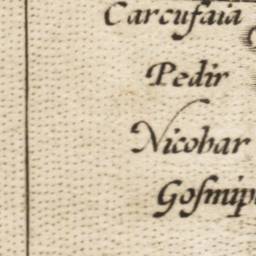 Carcufaia
Pedir
Nicobar
Gosmip